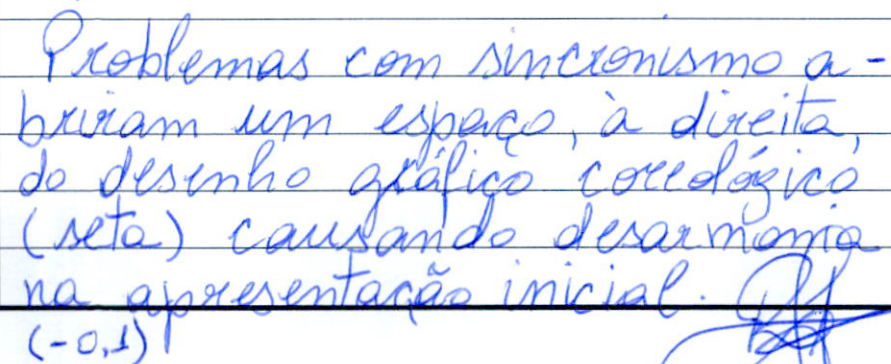 Problemas com sincronismo a-
briram um espaço, à direita,
do desenho gráfico coreológico
(seta) causando desarmonia
na apresentação inicial.
(-0,1)